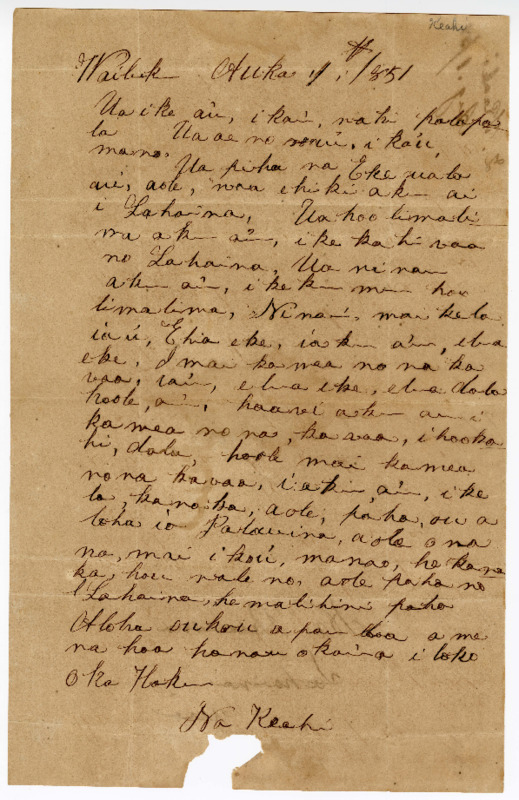 Keahi
Wailuku Auka 11, 1851
Ua ike au, i kau, na hi palapa
la Ua ae no wau, i kau,
manao,
Ua piha na Eke uala
au, aole, waa e hiki aku ai
i Lahaina, Ua hoolimali
ma aku au, i ke kahi waa
no Lahaina, Ua ninau
aku au, i keia mea hoo
limalima, Ninau, mai kela
iau, Ehia eke, iaku au, elua
eke, I mai ka mea no na ka
waa, iau, elua eke, elua dala
hoole, au, haawi aku au i
ka mea no na, ka waa, i hooka
hi, dala, hoole mai ka mea
no na ka waa, iaku, au, i ke
la, kanaka, aole, paha, ou a
loha io Palauina, aole o ma
na, mai i kou, manao, he kana
ka, hou wale no, aole paha no
Lahaina, he malihini paha
Aloha oukou a pau loa a me
na hoa hanau o kaina i loko
o ka Haku
Na Keahi